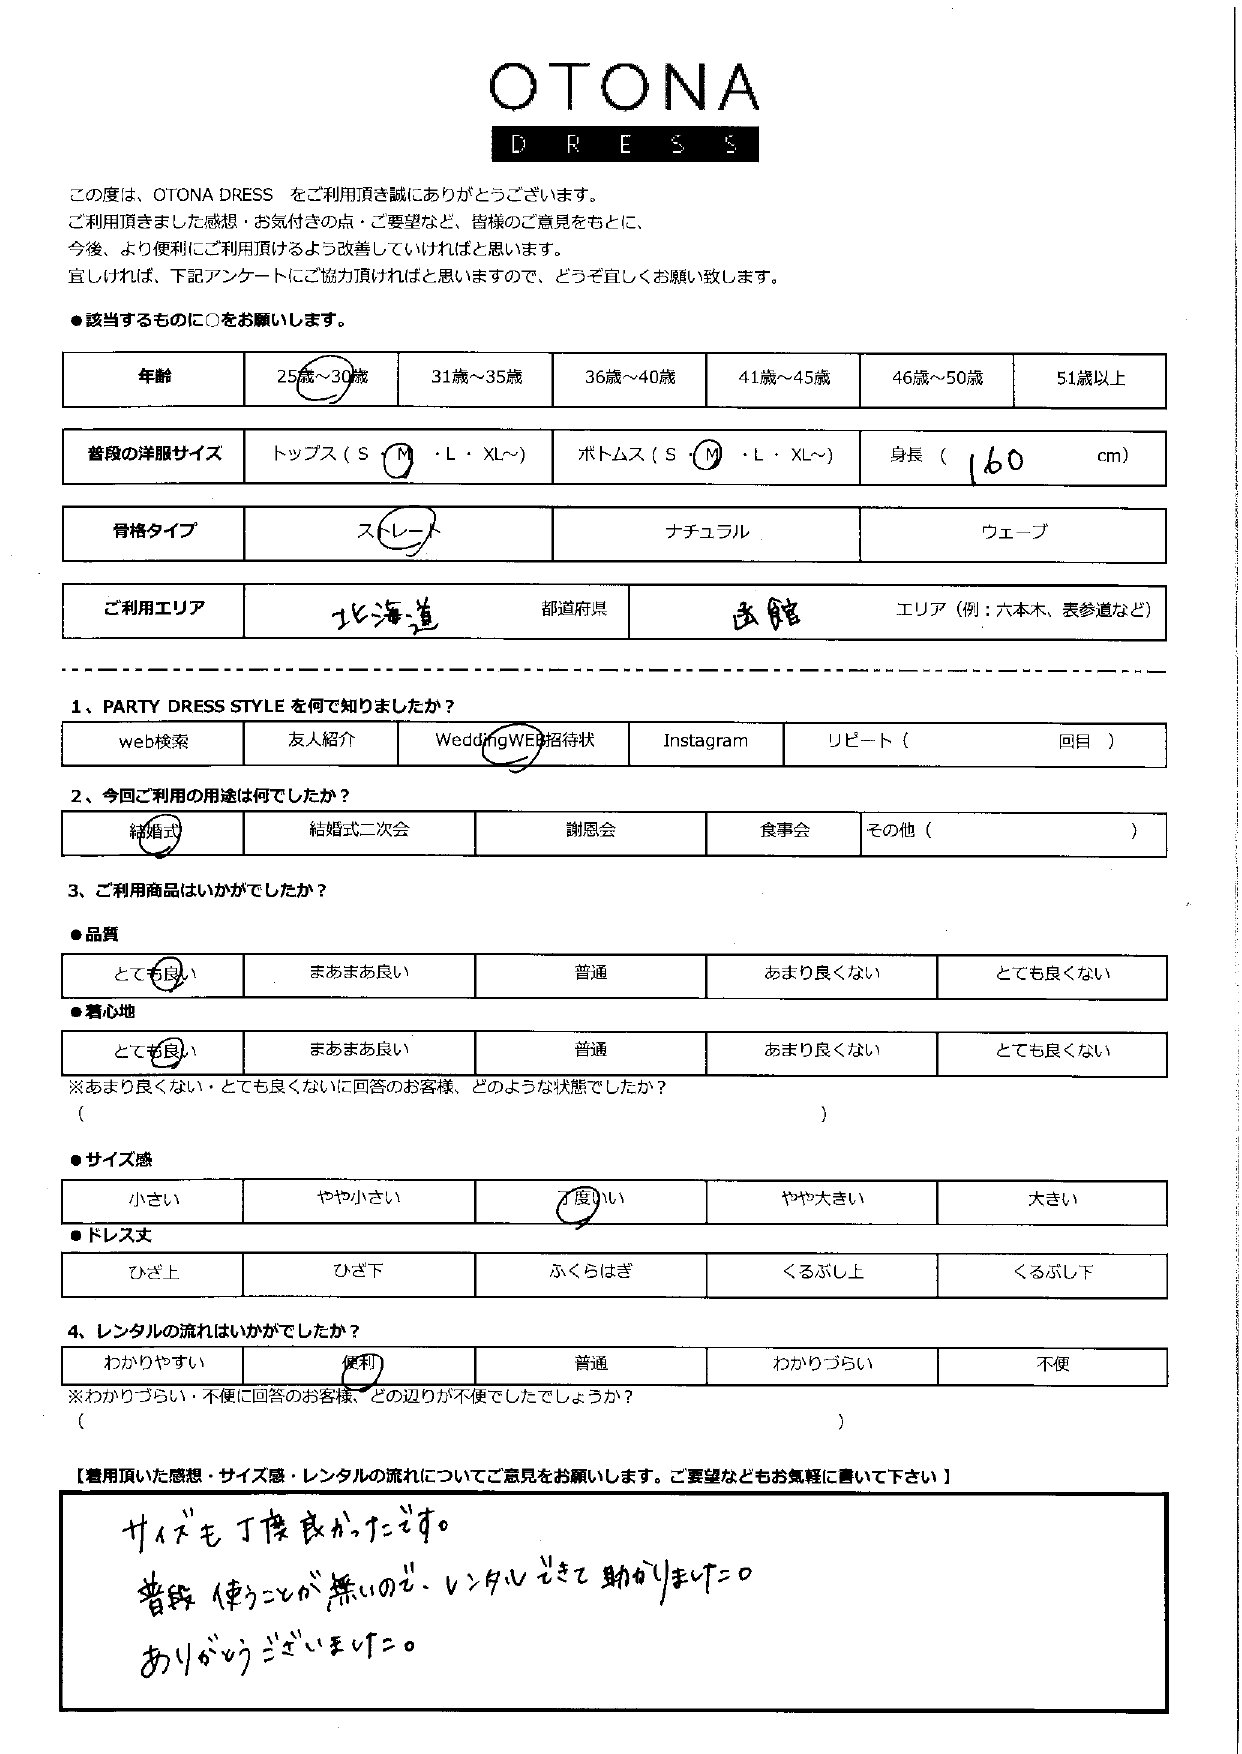 OTONA
DRESS
この度は、OTONA DRESS　をご利用頂き誠にありがとうございます。
ご利用頂きました感想・お気付きの点・ご要望など、皆様のご意見をもとに、
今後、より便利にご利用頂けるよう改善していければと思います。
宜しければ、下記アンケートにご協力頂ければと思いますので、どうぞ宜しくお願い致します。
●該当するものに○をお願いします。
年齢 25歳～30歳 31歳～35歳 36歳～40歳 41歳～45歳 46歳～50歳 51歳以上
普段の洋服サイズ トップス ( S ・ M ・L ・ XL～) ボトムス ( S ・ M ・L ・ XL～) 身長 ( 160 cm)
骨格タイプ ストレート ナチュラル ウェーブ
ご利用エリア 北海道 都道府県 函館 エリア（例：六本木、表参道など）
1、PARTY DRESS STYLE を何で知りましたか？
web検索 友人紹介 WeddingWEB招待状 Instagram リピート ( 回目 )
2、今回ご利用の用途は何でしたか？
結婚式 結婚式二次会 謝恩会 食事会 その他 ( )
3、ご利用商品はいかがでしたか？
●品質
とても良い まあまあ良い 普通 あまり良くない とても良くない
●着心地
とても良い まあまあ良い 普通 あまり良くない とても良くない
※あまり良くない・とても良くないに回答のお客様、どのような状態でしたか？
( )
●サイズ感
小さい やや小さい 丁度いい やや大きい 大きい
●ドレス丈
ひざ上 ひざ下 ふくらはぎ くるぶし上 くるぶし下
4、レンタルの流れはいかがでしたか？
わかりやすい 便利 普通 わかりづらい 不便
※わかりづらい・不便に回答のお客様、どの辺りが不便でしたでしょうか？
( )
【着用頂いた感想・サイズ感・レンタルの流れについてご意見をお願いします。ご要望などもお気軽に書いて下さい】
サイズも丁度良かったです。
普段使うことが無いので、レンタルできて助かりました。
ありがとうございました。